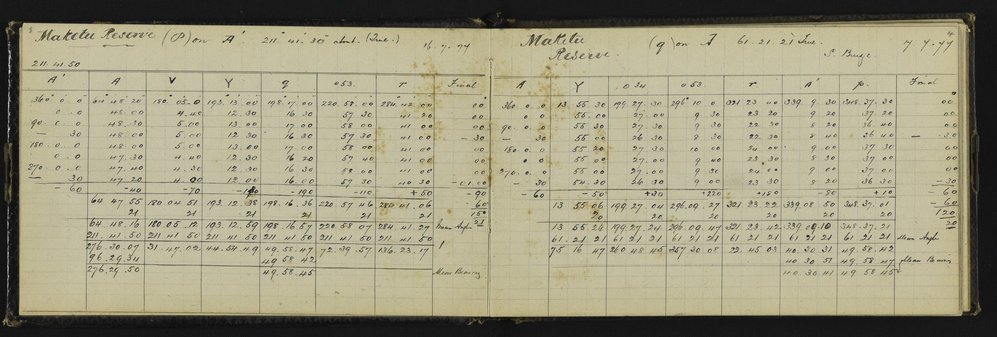 Maketu Reserve (P) on A'. 211° 41' 30" about. (True.) 16.7.77
211.41.50
A' A V Y q 053. r Final
360 0 0 64 48 20 180 05 0 193 13 00 198 17 00 220 58 00 284 42 00 00
0 0 48 00 4 40 12 30 16 30 57 30 41 20 00
90 0 0 48 30 5 00 13 00 17 00 58 00 41 00 00
30 48 00 5 00 12 30 16 30 57 30 41 00 30
180 0 0 48 00 5 00 13 00 17 00 58 00 41 00 00
0 0 47 30 4 40 12 30 16 20 57 40 41 00 00
270 0 0 47 40 4 30 12 30 16 30 58 00 41 00 00
30 47 20 4 00 12 00 16 00 57 30 40 30 01 00
- 60 - 40 - 70 - 190 - 110 + 50 - 90
64 47 55 180 04 51 193 12 38 198 16 36 220 57 46 284 41 06 - 60
21 21 21 21 21 21 150
64 48 16 180 05 12 193 12 59 198 16 57 220 58 07 284 41 27 Mean Angle 21
211 41 50 211 41 50 211 41 50 211 41 50 211 41 50 211 41 50
276 30 07 31 47 02 44 54 49 49 58 47 72 39 57 136 23 17
96 29 34 49 58 42
276 29 50 49 58 45 Mean Bearing
Maketu Reserve (q) on J 61.21.21 True. 7.7.77
P. Burge
A Y 034 053. r A' p. Final
360 0 0 13 55 30 199 27 30 296 10 0 321 23 00 339 9 30 348 37 30 00
0 0 55 00 27 00 9 30 23 20 9 20 37 20 00
90 0 0 55 30 27 30 9 30 22 30 8 20 36 40 00
30 55 00 26 30 9 30 22 30 8 40 36 40 - 30
180 0 0 55 20 27 30 10 00 24 00 9 00 37 30 00
0 0 55 00 27 00 9 40 23 30 8 30 37 00 00
270 0 0 55 00 27 00 9 30 24 00 9 00 37 30 00
30 54 30 26 30 9 00 23 30 8 20 36 30 - 30
- 60 - 50 + 30 + 220 + 40 - 50 + 10 - 60
13 55 06 199 27 04 296 09 27 321 23 22 339 08 50 348 37 01 - 60
20 20 20 20 20 20 120
13 55 26 199 27 24 296 09 47 321 23 42 339 09 10 348 37 21 20
61 21 21 61 21 21 61 21 21 61 21 21 61 21 21 61 21 21 Mean Angle
75 16 47 260 48 45 357 30 08 22 45 03 40 30 31 49 58 42
40 30 51 49 58 47 Mean Bearing
40 30 41 49 58 45